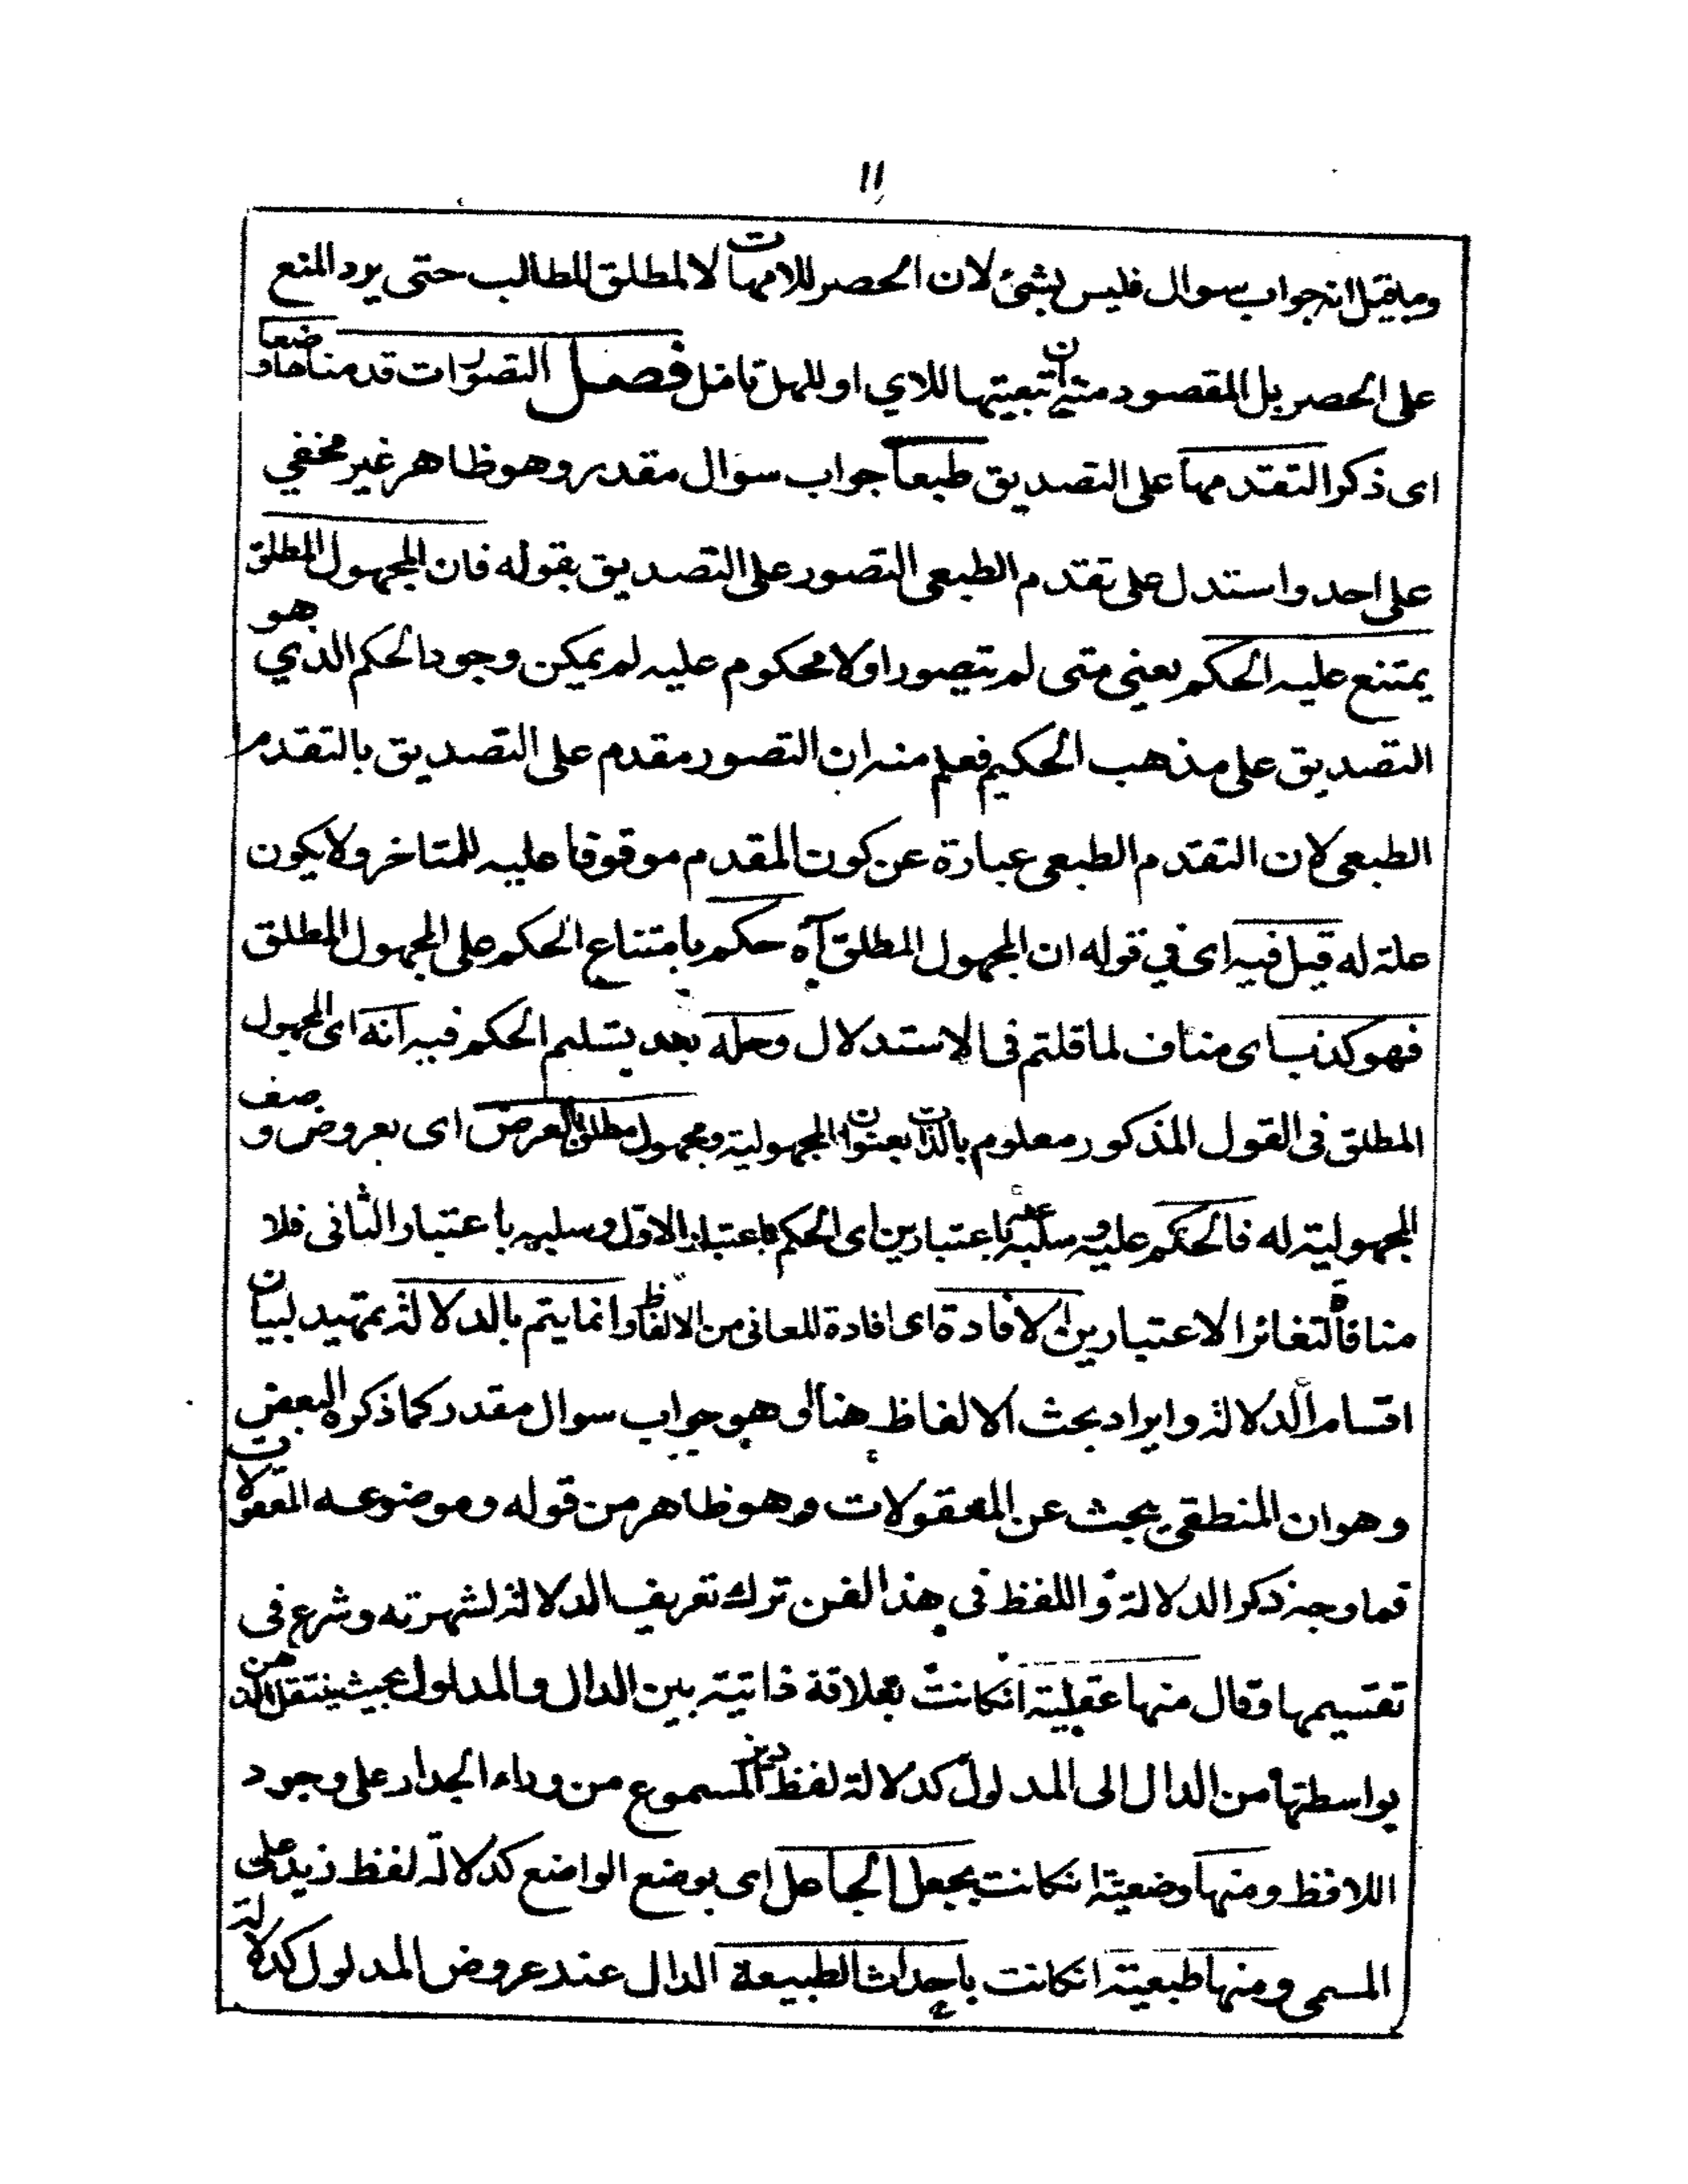 ۱۱
وما قيل انه جواب سوال فليس بشئ لان الحصر للامهات لا لمطلق للطالب حتى يرد المنع
على الحصر بل المقصود منه ان تبعيتها للاي او للهل تامل فصل التصورات قدمناها وضعا
اى ذكرا لتقدمها على التصديق طبعا جواب سوال مقدر وهو ظاهر غير مخفي
على احد واستدل على تقدم الطبعى التصور على التصديق بقوله فان المجهول المطلق
يمتنع عليه الحكم يعنى متى لم يتصور اولا محكوم عليه لم يمكن وجود الحكم الذي هو
التصديق على مذهب الحكيم فعلم منه ان التصور مقدم على التصديق بالتقدم
الطبعى لان التقدم الطبعى عبارة عن كون المقدم موقوفا عليه للمتاخر ولا يكون
علة له قيل فيه اى في قوله ان المجهول المطلق آه حكم بامتناع الحكم على المجهول المطلق
فهو كذب اى مناف لما قلتم فى الاستدلال وحله بعد تسليم الحكم فيه انه اى المجهول
المطلق فى القول المذكور معلوم بالذات بعنوان المجهولية ومجهول مطلق بالعرض اى بعروض وصف
المجهولية له فالحكم عليه وسلبه باعتبارين اى الحكم باعتبار الاول وسلبه باعتبار الثانى فلا
منافاة لتغائر الاعتبارين الافادة اى افادة المعانى من الالفاظ وانما يتم بالدلالة تمهيد لبيان
اقسام الدلالة وايراد بحث الالفاظ هنا وهو جواب سوال مقدر كما ذكره البعض
وهو ان المنطقى يبحث عن المعقولات وهو ظاهر من قوله وموضوعه المعقولات
فما وجه ذكر الدلالة واللفظ فى هذا الفن ترك تعريف الدلالة لشهرته وشرع فى
تقسيمها وقال منها عقلية انكانت بعلاقة ذاتية بين الدال والمدلول بحيث ينتقل الذهن
بواسطتها من الدال الى المدلول كدلالة لفظ ديز المسموع من وراء الجدار على وجود
اللافظ ومنها وضعية انكانت بجعل الجاعل اى بوضع الواضع كدلالة لفظ زيد على
المسمى ومنها طبعية انكانت باحداث الطبيعة الدال عند عروض المدلول كدلالة